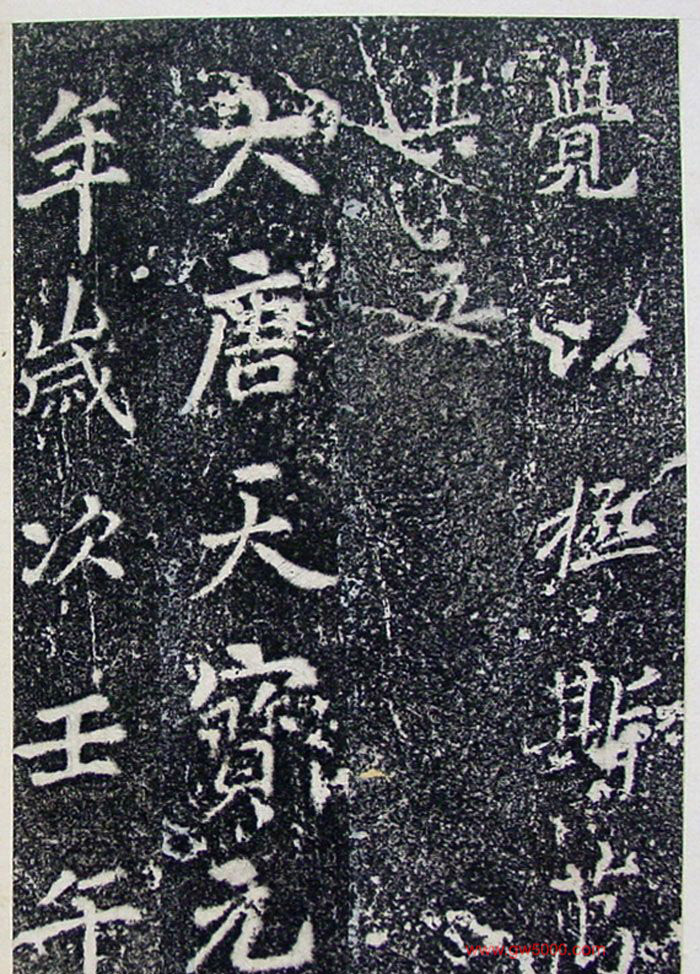 覺以極斯
其五
大唐天寶元
年歲次壬午
www.gw5000.com